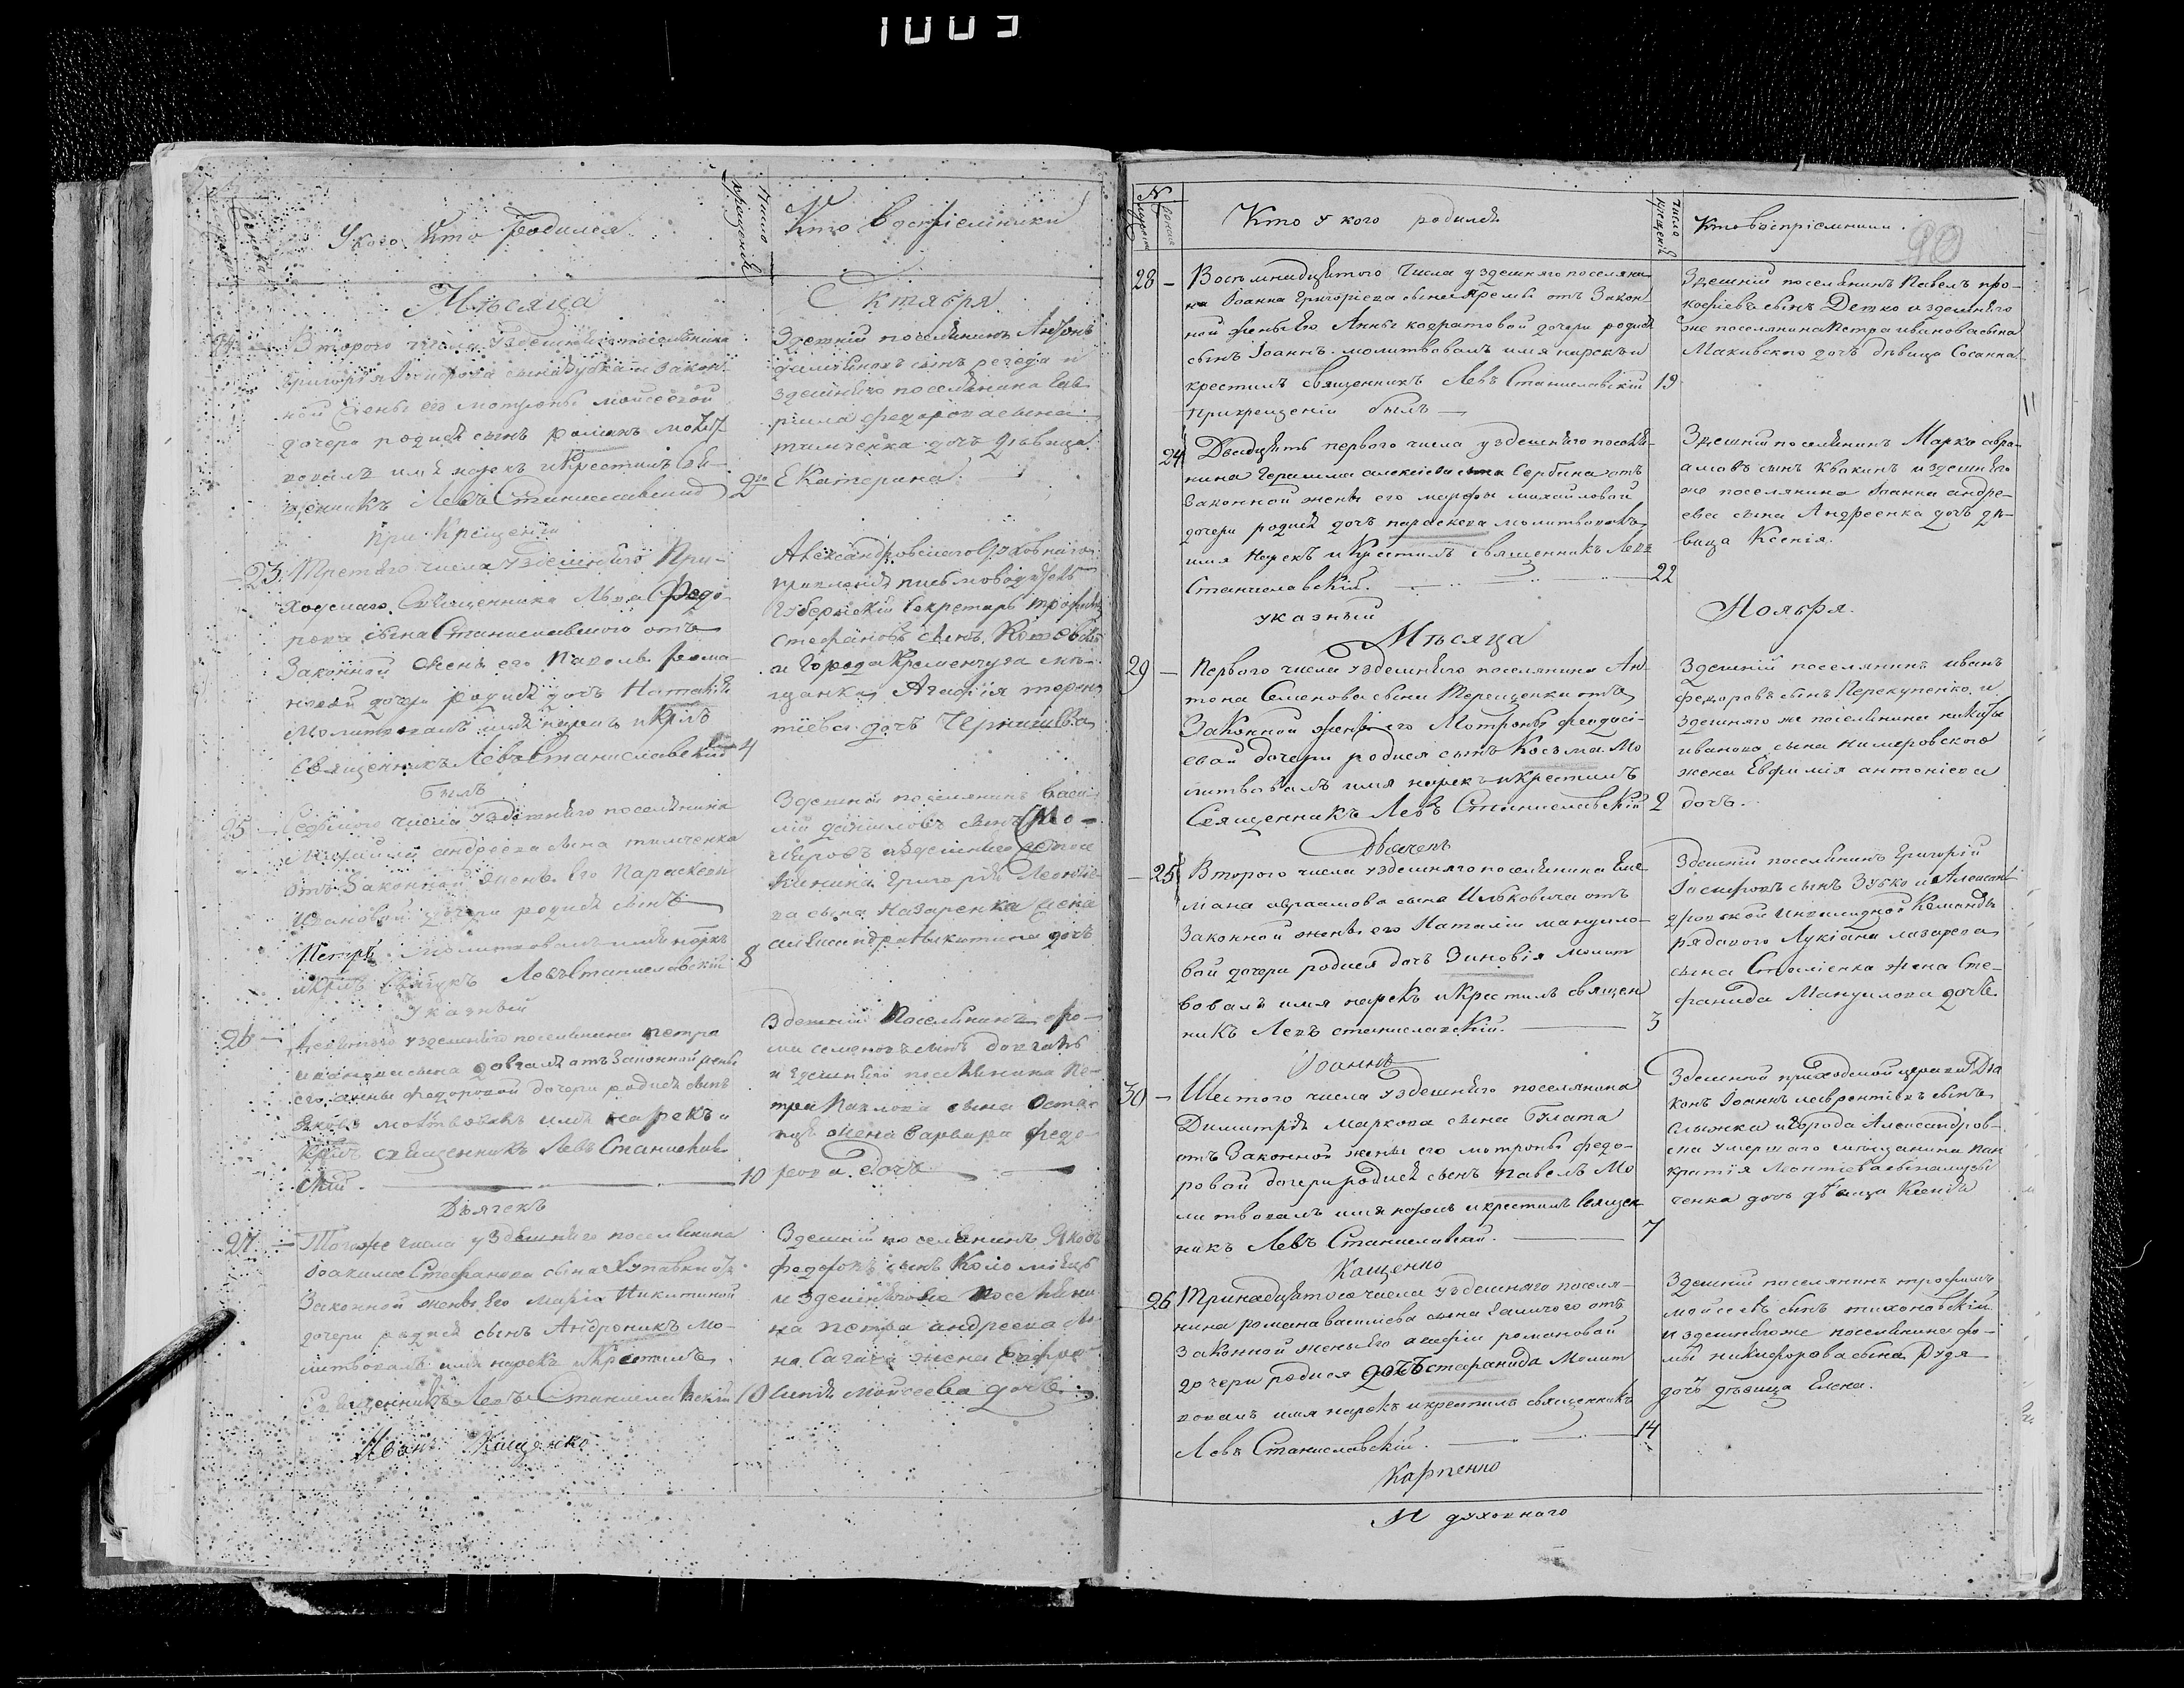 1009
У кого кто родился
Число крещенія
Кто воспріемники
Мѣсяца
Октября
24 — Второго числа у здешняго поселянина
Григорія сына Зубка от закон-
ной жены его Мотроны Моисеевой
дочери родился сынъ Романъ молит-
вовалъ имя нарекъ и крестилъ свя-
щенникъ Левъ Станиславскій 2го
при крещеніи
Здешній поселянинъ Антонъ
сынъ и
здешняго поселянина Гав-
риила Федорова сына
тимченка дочь дѣвица
Екатерина.
23. Третяго числа у здешняго При-
ходскаго Священника Льва Федо-
рова сына Станиславского отъ
Законной жены его рома-
новой дочери родися дочь Наталія
Молитвовалъ имя нарекъ и крлъ
Священникъ Левъ Станиславскій 4
былъ
Александровского Духовнаго
правленія письмоводитель
Губернскій Секретарь Трофимъ
Стефановъ сынъ
и Города Кременчуга мѣ-
щанка Агафія терен-
тіева дочь
25 — Седьмого числа у здешняго поселянина
Михаила андреева сына тимченка
отъ Законной жены его Параскевы
Ивановой дочери родися сынъ
Петръ Молитвовалъ имя нарекъ
икрлъ свящнкъ Левъ Станиславскій 8
Указный
Здешній поселянинъ Васи-
лій даниловъ сынъ
и здешняго посе
лянина Григорія Леонтіе-
ва сына Назаренка жена
александра Никитина дочь
26 — у здешняго поселянина петра
иванова сына довгаля отъ Законной жены
его анны федоровой дочери родися сынъ
Яковъ молтвовалъ имя нарекъ и
крлъ священникъ Левъ Станислав
скій. 10
Дьячекъ
Здешній Поселянинъ
семеновъ сынъ довгаль
и здешняго поселянина Пе-
тра Павлова сына Оста-
жена Варвара федо-
рова дочь
27. — Того же числа у здешняго поселянина
Іоакима Стефанова сына отъ
Законной жены его Маріи Никитиной
дочери родися сынъ Андроникъ Мо-
литвовалъ имя нарекъ и крестилъ
Священникъ Левъ Станиславскій 10
Здешній поселянинъ Яковъ
федоровъ сынъ Коломіецъ
и здешняго же поселяни
на петра андреева сы-
на жена
Моисеева дочь
Иванъ Кащенко
N
Кто у кого родился
число крещеній
Кто воспріемники.
90
28 — Восемнадцятого Числа у здешняго поселяни
на Іоанна Григоріева сына Яремы отъ Закон
ной жены его Анны кодратовой дочери родися
сынъ Іоаннъ. молитвовалъ имя нарекъ и
крестилъ священникъ Левъ Станиславскій 19
при крещеніи былъ —
Здешній поселянинъ Павелъ про-
кофіевъ сынъ Детко и здешняго
же поселянина Петра иванова сына
Макивского дочь дѣвица Сосанна
24 Двадцять первого числа у здешняго поселя-
нина Герасима алексіева сына Сербина отъ
Законной жены его марфы михайловой
дочери родися дочь параскева молитвовалъ
имя нарекъ и крестилъ священникъ Левъ
Станиславскій. 22
указный
Здешній поселянинъ Марко авра-
амовъ сынъ Квакинъ и здешняго
же поселянина Іоанна андре-
ева сына Андреенка дочь дѣ-
вица Ксенія.
Мѣсяца
Ноября.
29 — Первого числа у здешняго поселянина Ан-
тона Семенова сына Терещенка отъ
Законной жены его Мотроны феодосі-
евой дочери родися сынъ Косьма Мо
литвовалъ имя нарекъ и крестилъ
Священникъ Левъ Станиславскій 2
Дьячекъ
Здешній поселянинъ иванъ
федоровъ сынъ Перекупенко. и
здешняго же поселянина никиты
иванова сына нимеровского
жена Евфимія антоніева
дочь.
25 Второго числа у здешняго поселянина Еме
ліана авраамова сына Ицковича отъ
Законной жены его Наталіи мануило-
вой дочери родися дочь Зиновія Молит
вовалъ имя нарекъ и крестилъ священ
никъ Левъ станиславскій. 3
Іоаннъ
Здешній поселянинъ Григорій
сынъ Зубко и Александ
дровской Инвалидной Команды
рядового Лукіана лазарева
сына жена Сте-
фанида Мануилова дочь
30 — Шестого числа у здешняго поселянина
Димитрія Маркова сына Булата
отъ Законной жены его мотроны федо-
ровой дочери родися сынъ Павелъ Мо
литвовалъ имя нарекъ и крестилъ священ
никъ Левъ Станиславскій. 7
Кащенко
Здешней приходской церкви Діа
конъ Іоаннъ лаврентіевъ сынъ
и Города Александров-
ска умершаго мѣщанина пан
кратія
ченка дочь дѣвица Ксенія
26 Тринадцятого числа у здешняго поселя-
нина романа василіева сына Галичого отъ
Законной жены его агафіи романовой
дочери родися дочь стефанида Молит
вовалъ имя нарекъ и крестилъ священникъ
Левъ Станиславскій. 14
Карпенко
Здешній поселянинъ трофимъ
моисеевъ сынъ тихоновскій
и здешняго же поселянина фо-
мы никифорова сына Рудя
дочь дѣвица Елена.
И духовнаго